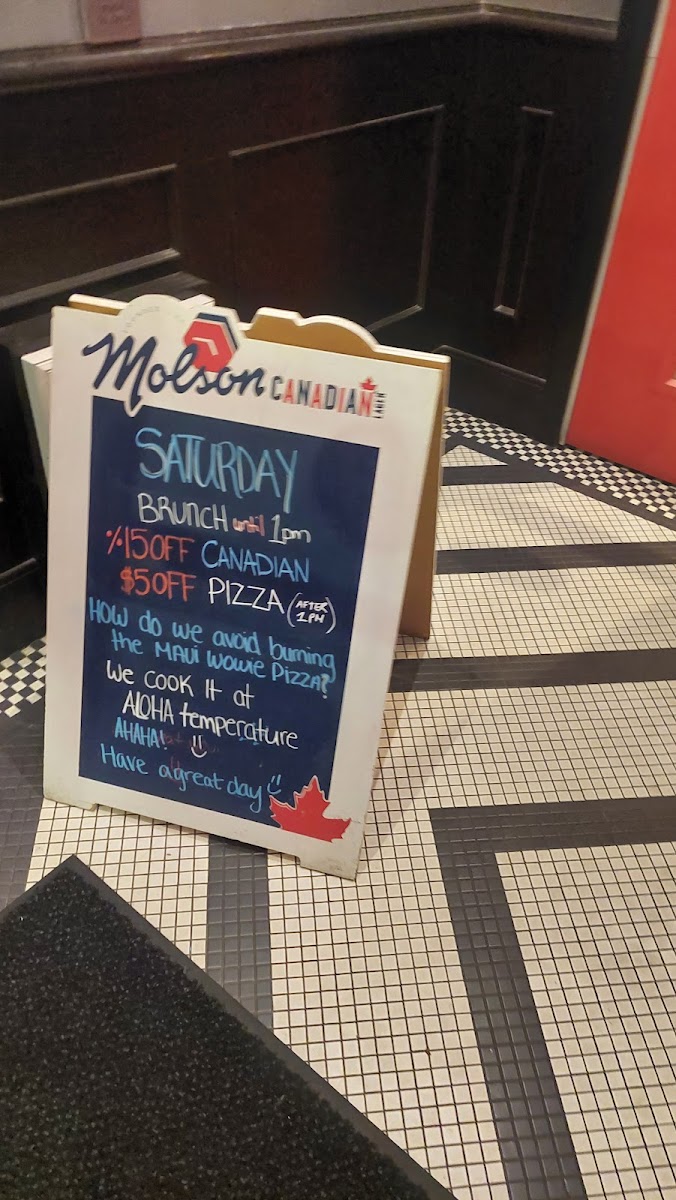 Molson CANADIAN LAGER
SATURDAY
BRUNCH until 1pm
%15OFF CANADIAN
$5OFF PIZZA (AFTER 1PM)
HOW do we avoid burning
the MAUI WOWIE PIZZA?
We COOK It at
ALOHA temperature
AHAHA!
Have a great day